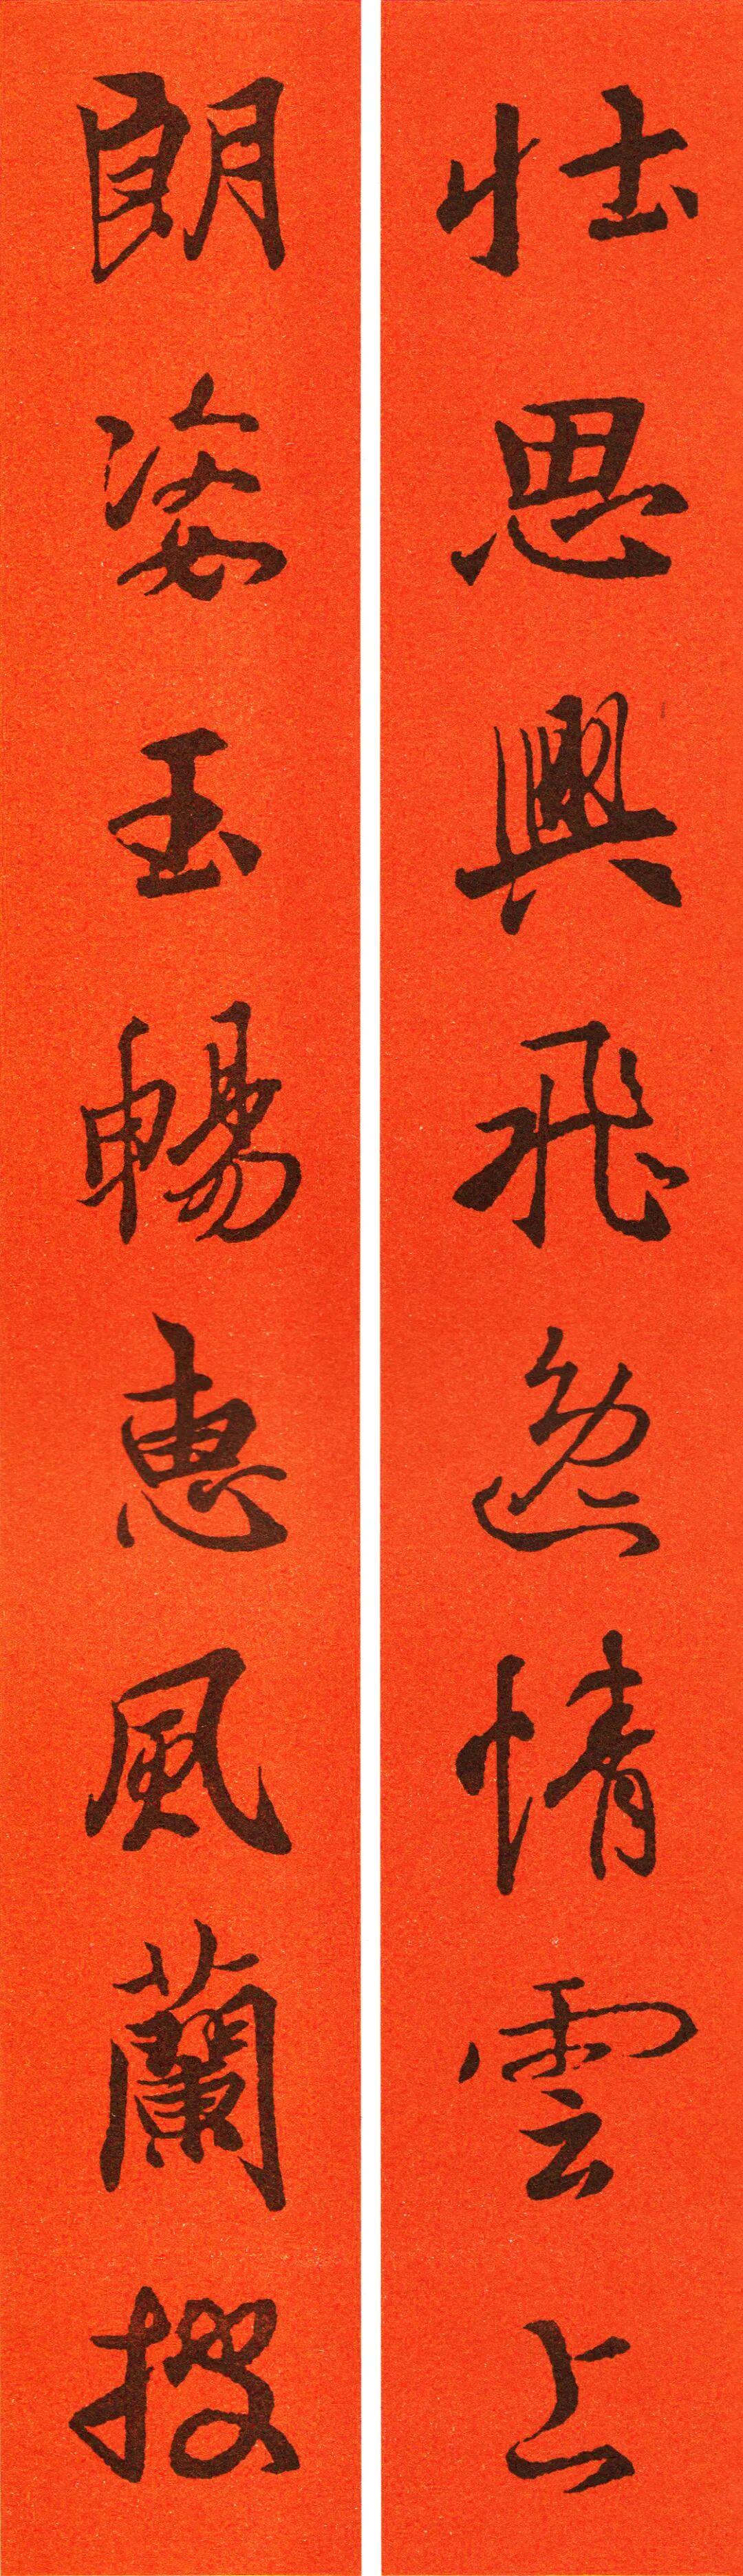 壯思興飛逸情雲上
朗姿玉暢惠風蘭披